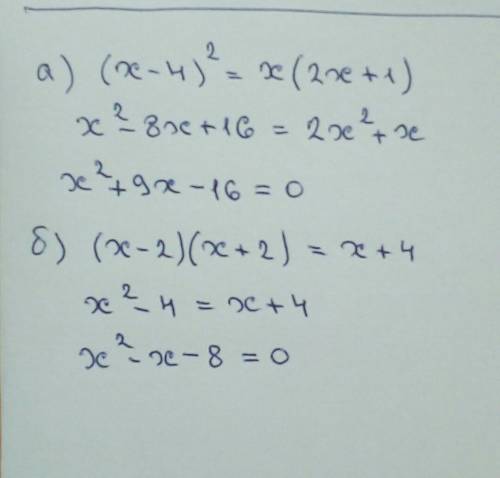 а) (x-4)² = x(2x+1)
x²-8x+16 = 2x²+x
x²+9x-16 = 0
б) (x-2)(x+2) = x+4
x²-4 = x+4
x²-x-8 = 0